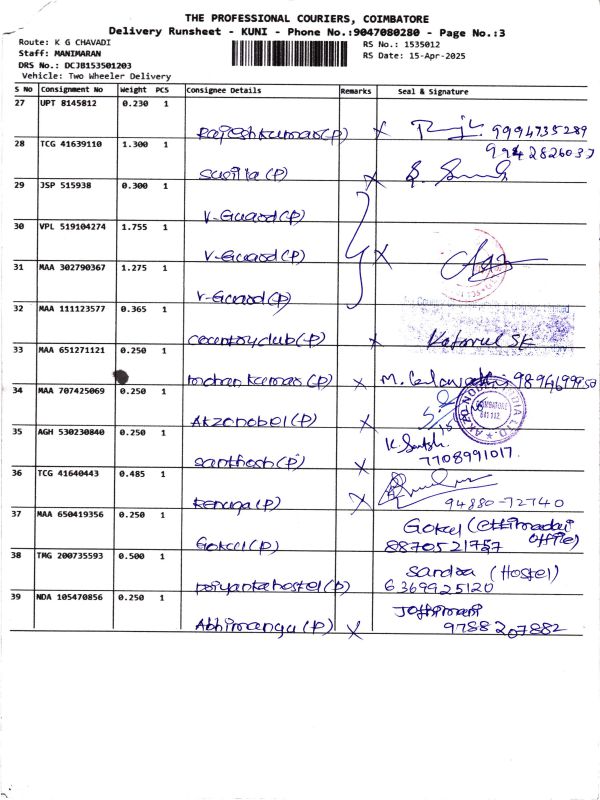 THE PROFESSIONAL COURIERS, COIMBATORE
Delivery Runsheet - KUNI - Phone No.:9047080280 - Page No.:3
Route: K G CHAVADI
RS No.: 1535012
Staff: MANIMARAN
RS Date: 15-Apr-2025
DRS No.: DCJB153501203
Vehicle: Two Wheeler Delivery
S No Consignment No Weight PCS Consignee Details Remarks Seal & Signature
27 UPT 8145812 0.230 1
Rajeshkumar(P) x 9994735289
28 TCG 41639110 1.300 1 9942826037
Sugila(P) x
29 JSP 515938 0.300 1
V-Guard(P)
30 VPL 519104274 1.755 1
V-Guard(P) x
31 MAA 302790367 1.275 1
V-Guard(P)
32 MAA 111123577 0.365 1
countryclub(P) x
33 MAA 651271121 0.250 1
mohan kumar(P) x M. 9894699950
34 MAA 707425069 0.250 1
Akzonobel(P) x
COIMBATORE
35 AGH 530230840 0.250 1
K. Santosh.
santhosh(P) x 7708991017
36 TCG 41640443 0.485 1
Renuga(P) x 94880-72740
37 MAA 650419356 0.250 1
Gokul (ettimadai office)
Gokul(P) 8870521757
38 TMG 200735593 0.500 1
Sandra (Hostel)
priyanka hostel(P) 6369925120
39 NDA 105470856 0.250 1
Jothimani
Abhimanyu(P) x 9788207882